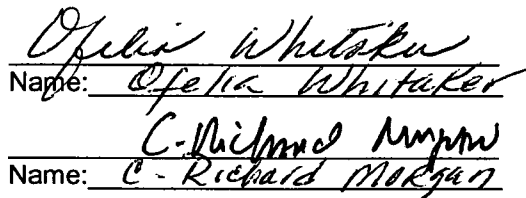 Ofelia Whitaker
Name: Ofelia Whitaker
C-Richard Morgan
Name: C - Richard Morgan